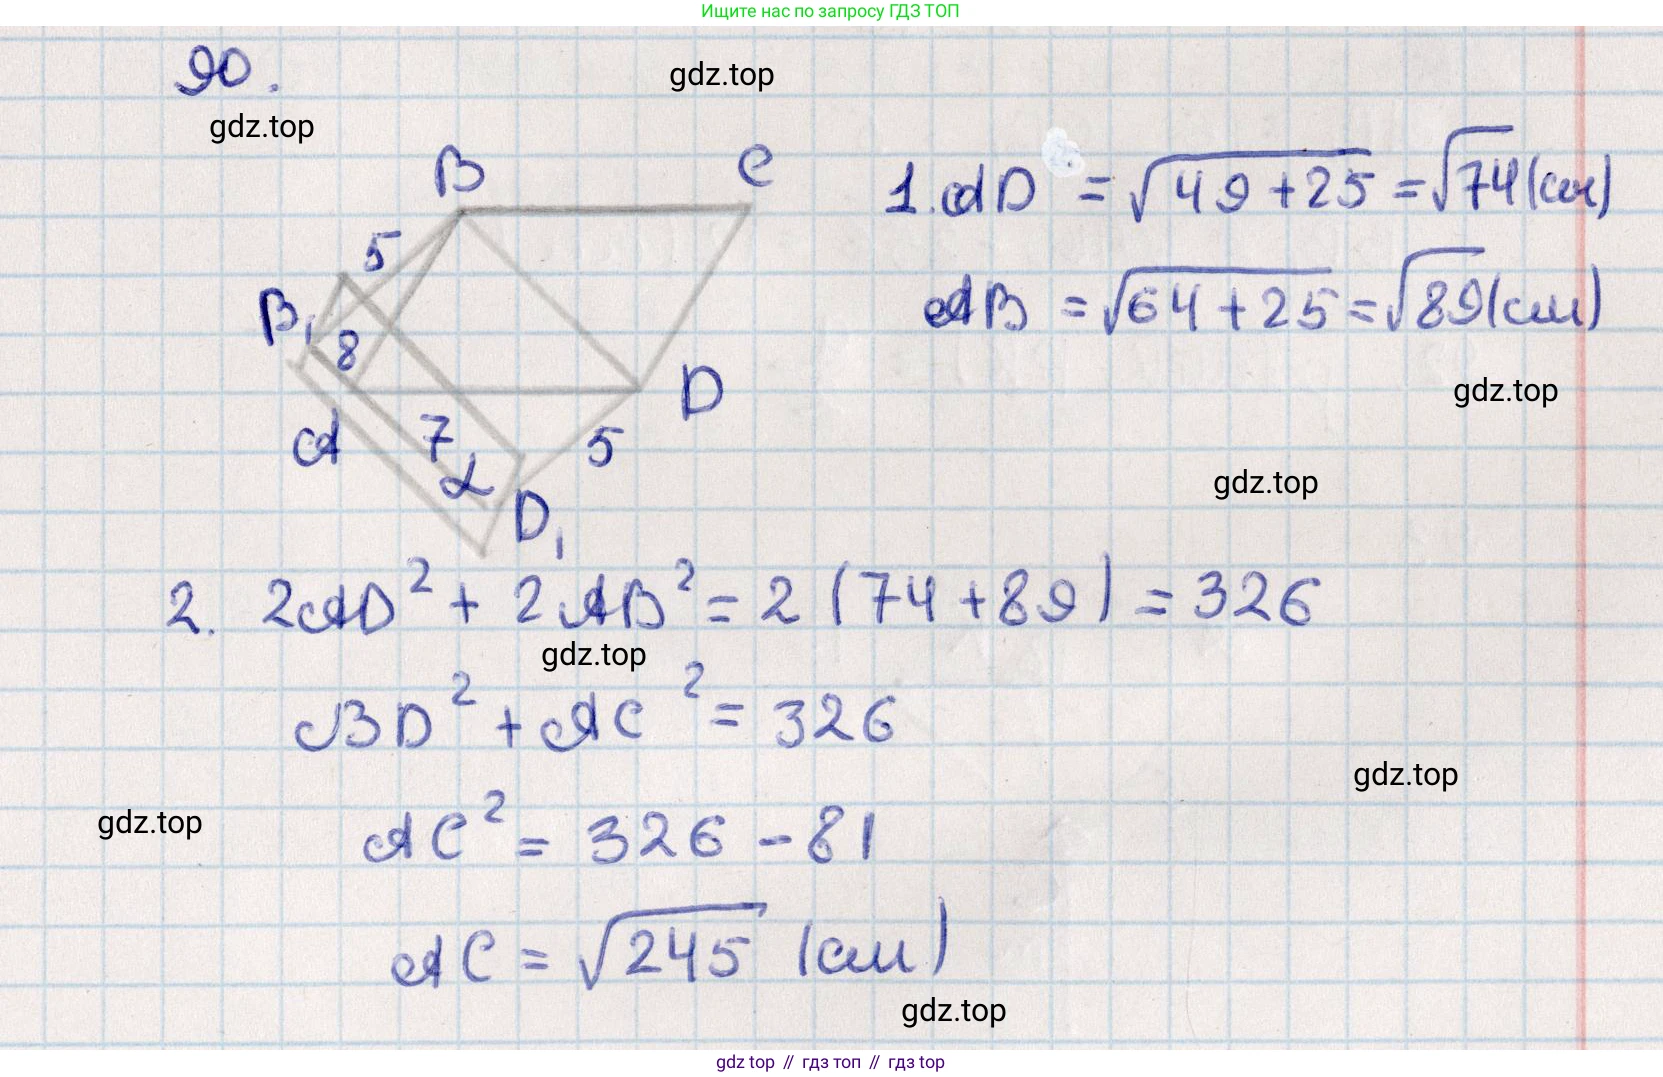 Ищите нас по запросу ГДЗ ТОП
90.
gdz.top
gdz.top
B C
5
B₁
8
A
7
α
D
5
D₁
1. AD = √49+25 = √74 (см)
AB = √64+25 = √89 (см)
gdz.top
gdz.top
2. 2AD² + 2AB² = 2 (74+89) = 326
gdz.top
BD² + AC² = 326
gdz.top
gdz.top
AC² = 326 - 81
AC = √245 (см)
gdz.top
gdz top // гдз топ // гдз top